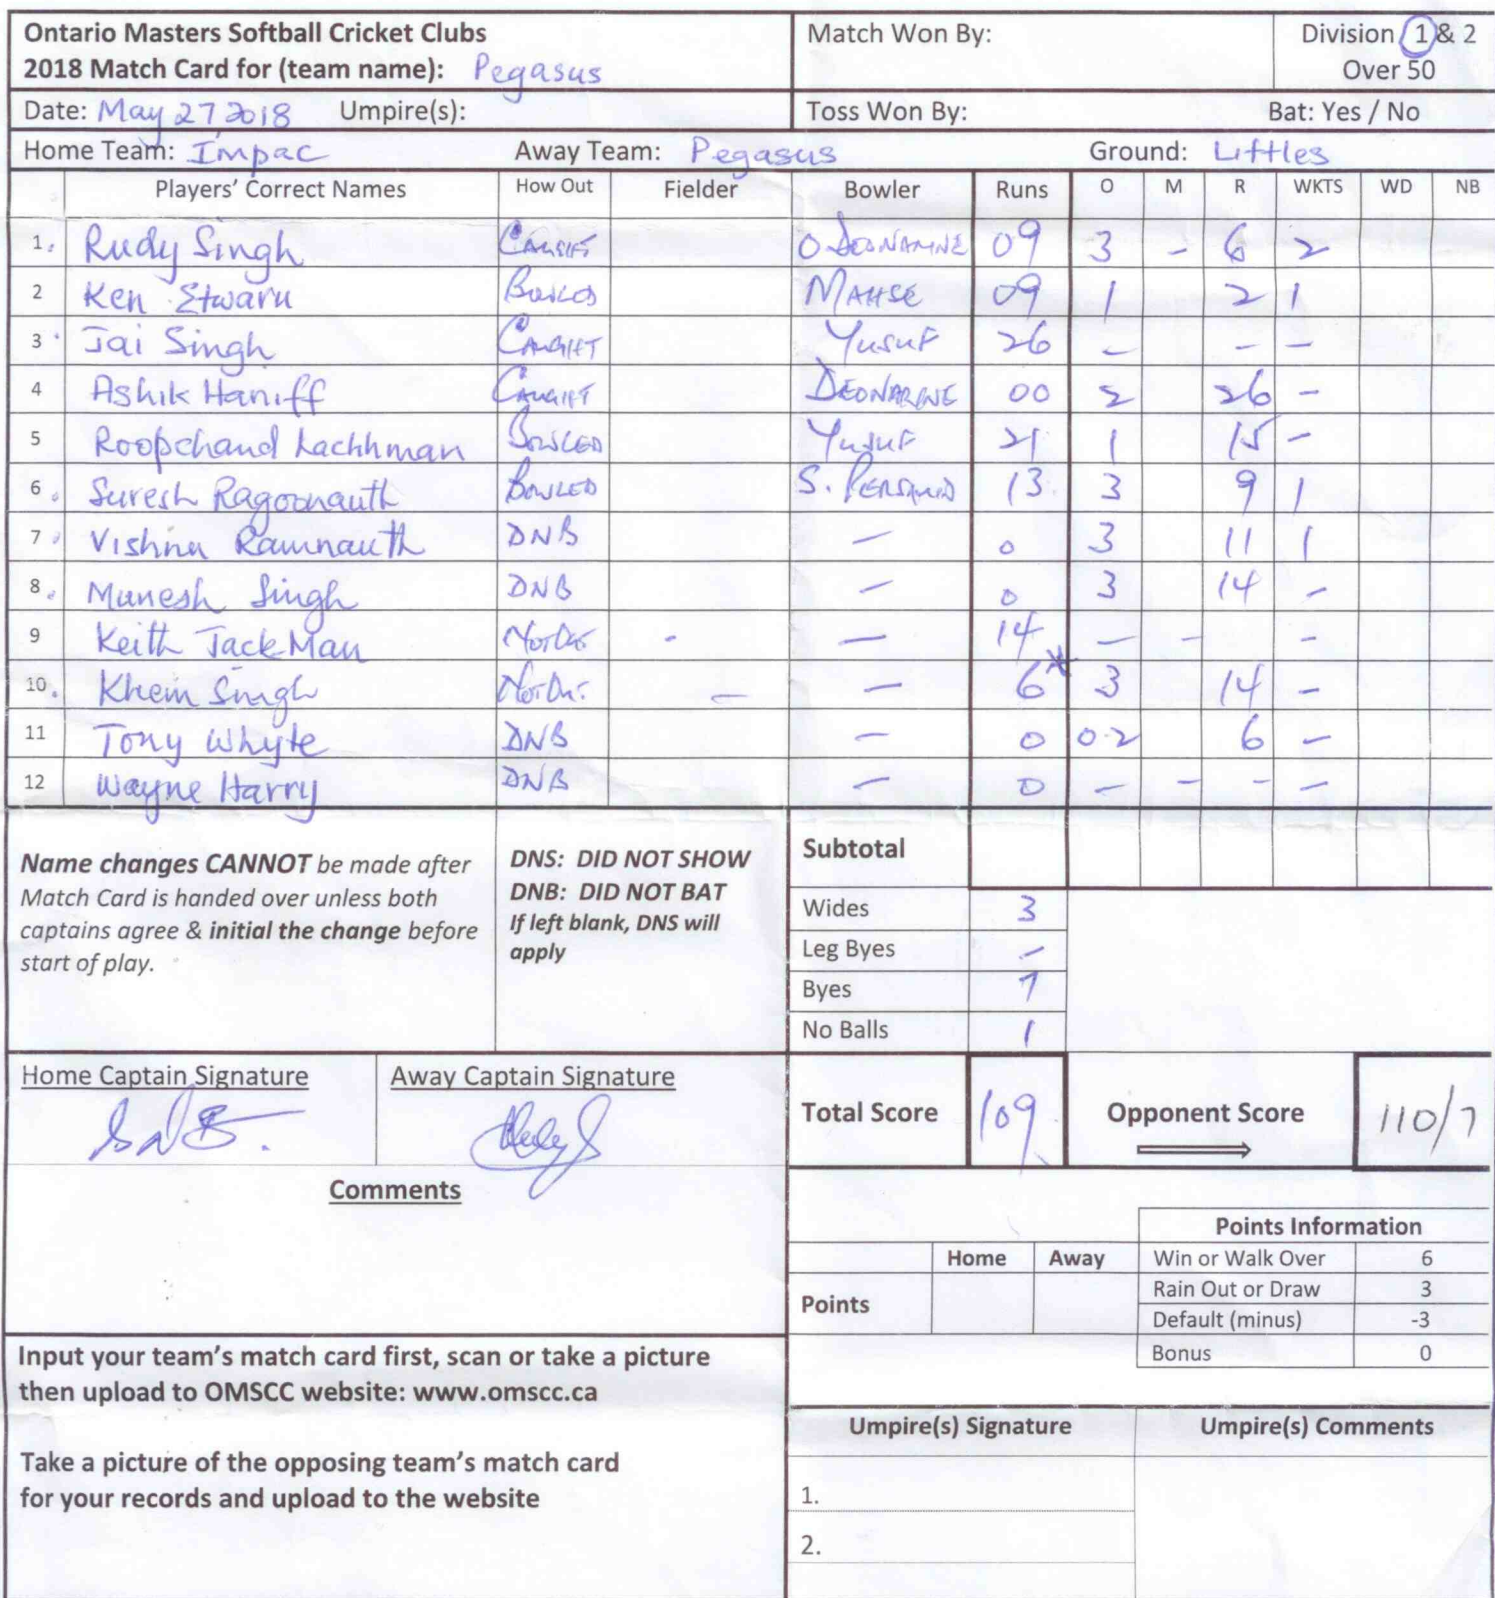 Ontario Masters Softball Cricket Clubs
2018 Match Card for (team name): Pegasus
Match Won By:
Division 1 & 2
Over 50
Date: May 27 2018 Umpire(s):
Toss Won By: Bat: Yes / No
Home Team: Impac Away Team: Pegasus Ground: Littles
Players' Correct Names How Out Fielder Bowler Runs O M R WKTS WD NB
1. Rudy Singh Caught O 09 3 - 6 2
2 Ken Etwaru Bowled 09 1 2 1
3 Jai Singh Caught Yusuf 26 - - -
4 Ashik Haniff Caught Deonarine 00 2 26 -
5 Roopchand Lachhman Bowled Yusuf 21 1 15 -
6. Suresh Ragoonauth Bowled S. Persaud 13 3 9 1
7 Vishnu Ramnauth DNB - 0 3 11 1
8. Munesh Singh DNB - 0 3 14 -
9 Keith JackMan Not Out - - 14 - - -
10. Khem Singh Not Out - - 6* 3 14 -
11 Tony Whyte DNB - 0 0.2 6 -
12 Wayne Harry DNB - 0 - - - -
Name changes CANNOT be made after
Match Card is handed over unless both
captains agree & initial the change before
start of play.
DNS: DID NOT SHOW
DNB: DID NOT BAT
If left blank, DNS will
apply
Subtotal
Wides 3
Leg Byes -
Byes 7
No Balls 1
Home Captain Signature
Away Captain Signature
Total Score 109 Opponent Score 110/7
Comments
Points Information
Home Away Win or Walk Over 6
Points
Rain Out or Draw 3
Default (minus) -3
Bonus 0
Input your team's match card first, scan or take a picture
then upload to OMSCC website: www.omscc.ca
Take a picture of the opposing team's match card
for your records and upload to the website
Umpire(s) Signature Umpire(s) Comments
1.
2.